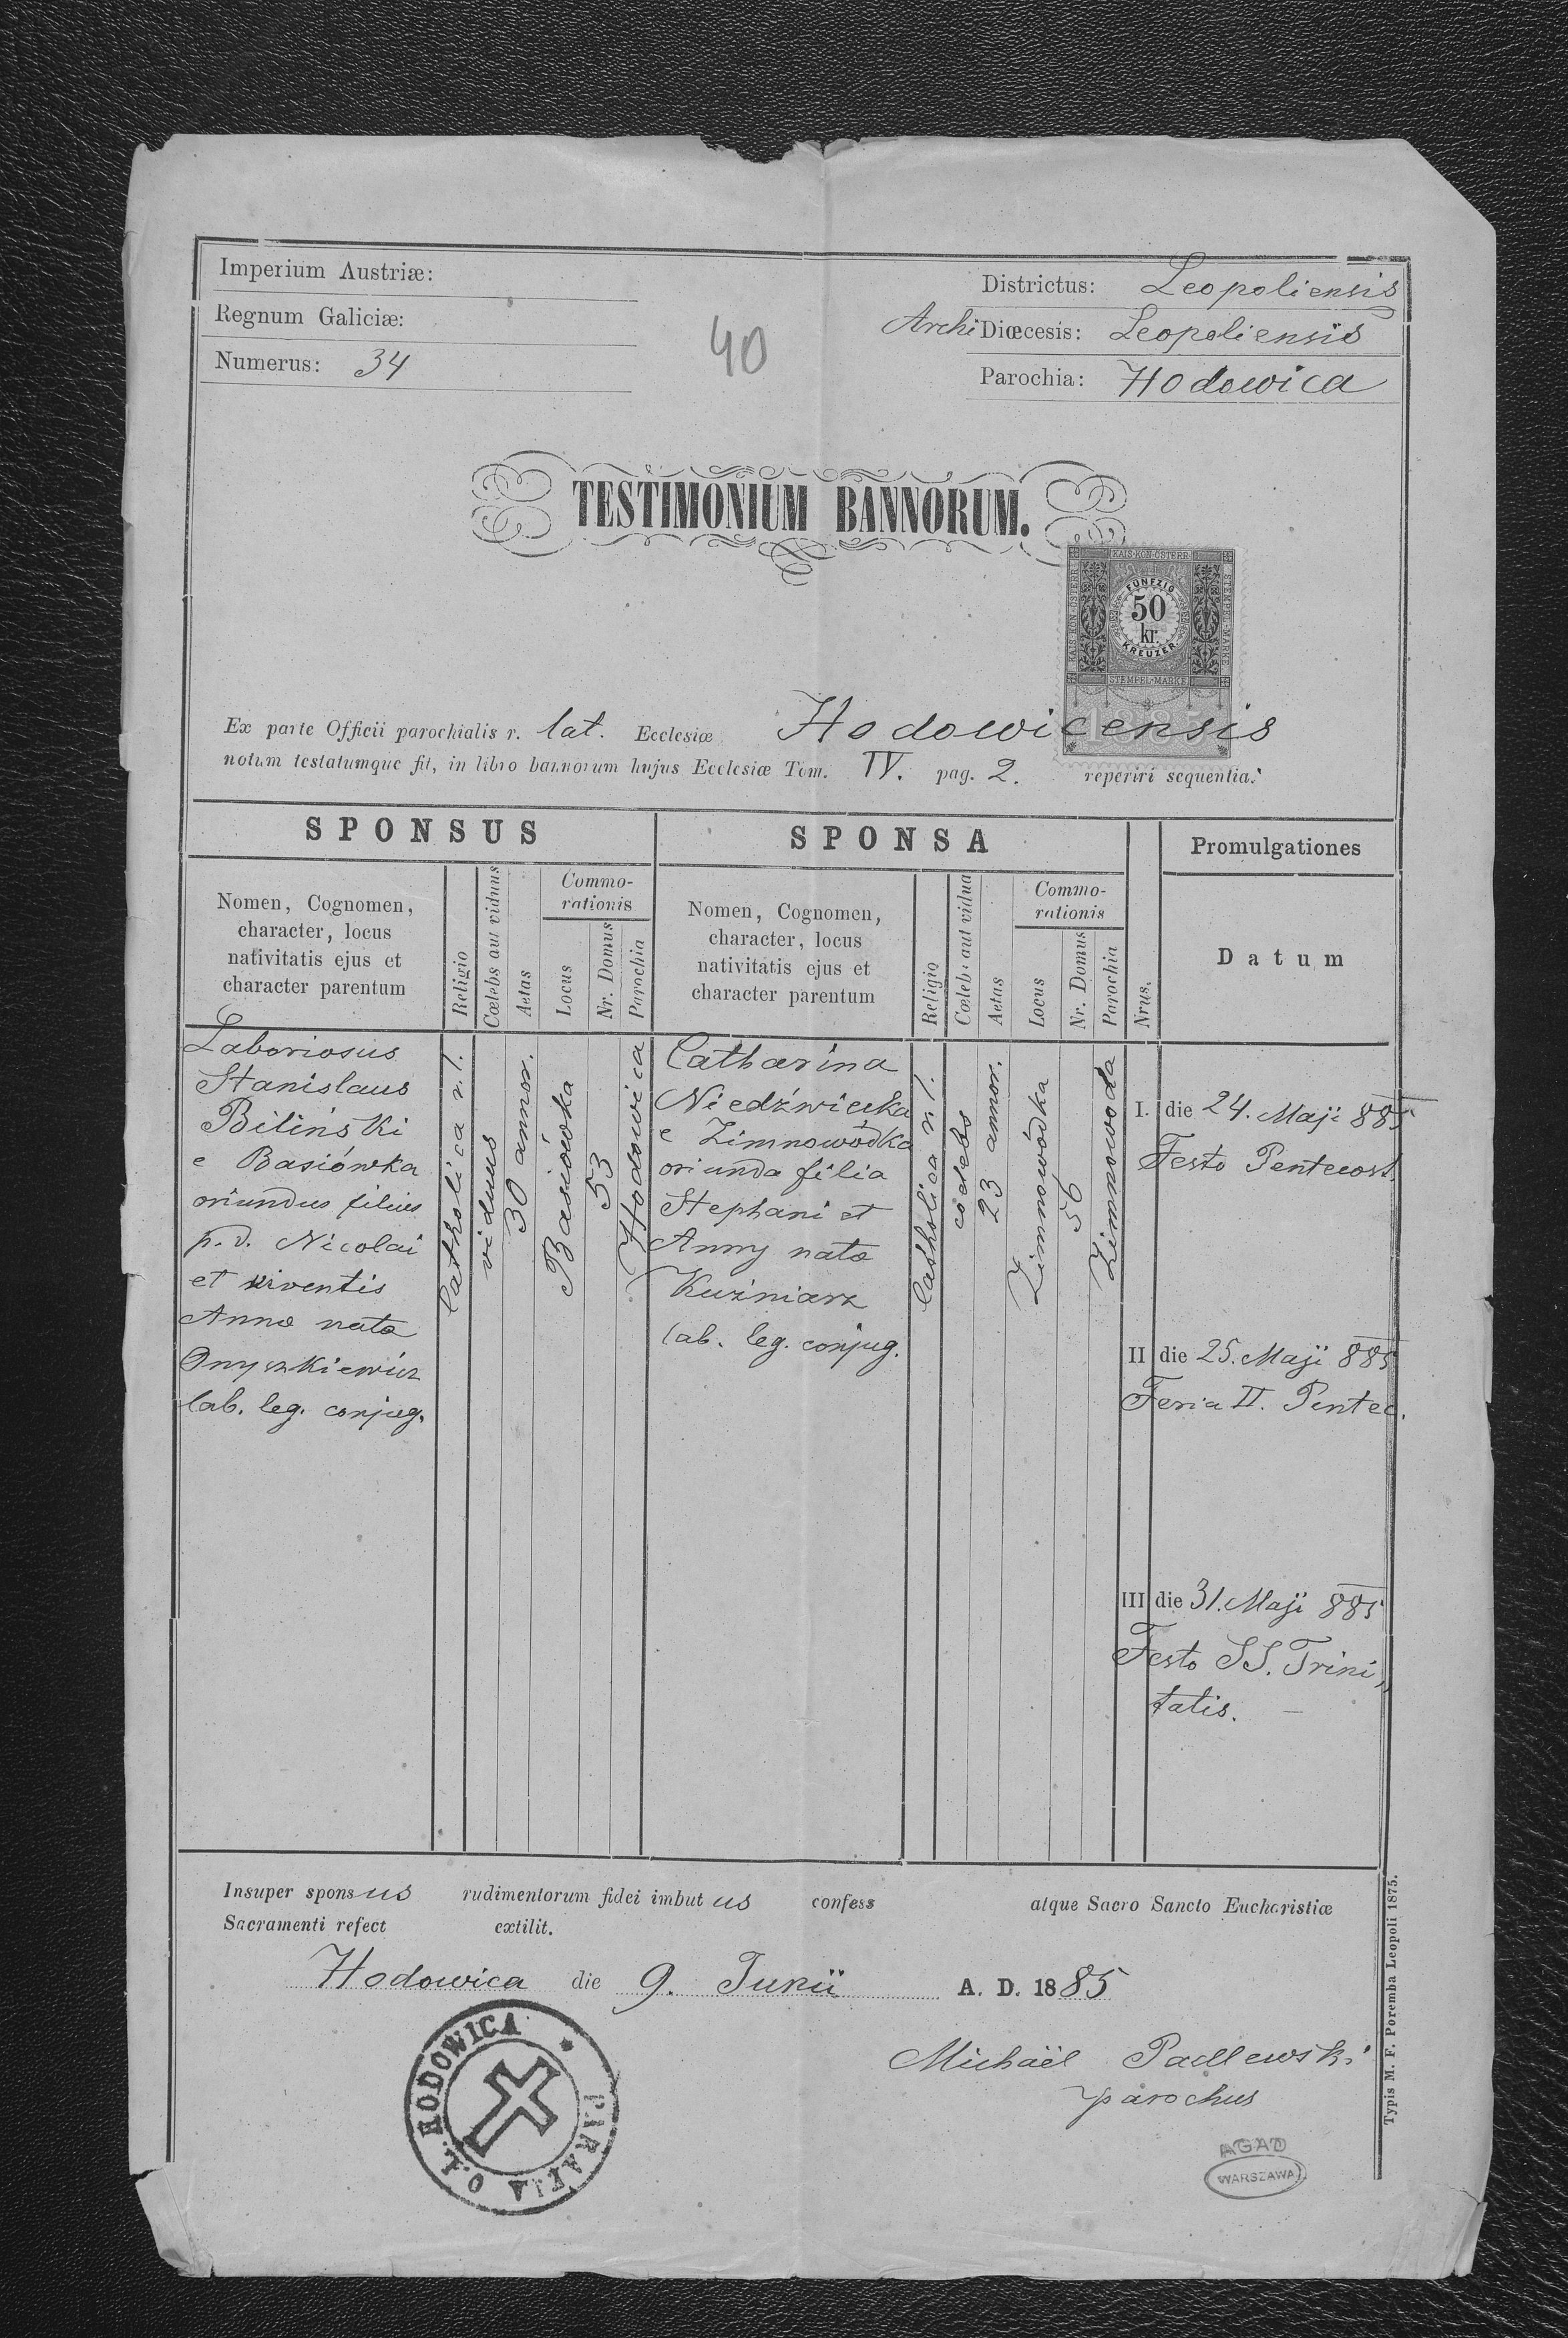 Imperium Austriæ:
Regnum Galiciæ:
Numerus: 34
40
Districtus: Leopoliensis
Archi Diœcesis: Leopoliensis
Parochia: Hodowica
TESTIMONIUM BANNORUM.
KAIS·KÖN·ÖSTERR
KAIS·KÖN·ÖSTERR
STEMPEL-MARKE
FÜNFZIG
50
kr.
KREUZER
STEMPEL-MARKE
Ex parte Officii parochialis r. lat. Ecclesiæ Hodowicensis
notum testatumque fit, in libro bannorum hujus Ecclesiæ Tom. IV. pag. 2. reperiri sequentia:
SPONSUS
Nomen, Cognomen,
character, locus
nativitatis ejus et
character parentum
Religio
Cœlebs aut viduus
Aetas
Commo-
rationis
Locus
Nr. Domus
Parochia
SPONSA
Nomen, Cognomen,
character, locus
nativitatis ejus et
character parentum
Religio
Cœlebs aut vidua
Aetas
Commo-
rationis
Locus
Nr. Domus
Parochia
Nrus.
Promulgationes
Datum
Laboriosus
Stanislaus
Biliński
e Basiówka
oriundus filius
p. d. Nicolai
et viventis
Anna nata
Onyszkiewicz
lab. leg. conjug.
Catholica r. l.
viduus
30 annor.
Basiówka
53
Hodowica
Catharina
Niedźwiecka
e Zimnowódka
oriunda filia
Stephani et
Anny nata
Kuźniarz
lab. leg. conjug.
Catholica r. l.
coelebs
23 annor.
Zimnowódka
56
Zimnowoda
I. die 24. Maji 885
Festo Pentecost.
II die 25. Maji 885
Feria II. Pentec.
III die 31. Maji 885
Festo SS. Trini„
tatis. —
Insuper sponsus rudimentorum fidei imbutus confess atque Sacro Sancto Eucharistiæ
Sacramenti refect extitit.
Hodowica die 9. Junii A. D. 1885
Michaël Padlewski
parochus
PARAFIA O.Ł. HODOWICA *
AGAD
WARSZAWA
Typis M. F. Poremba Leopoli 1875.